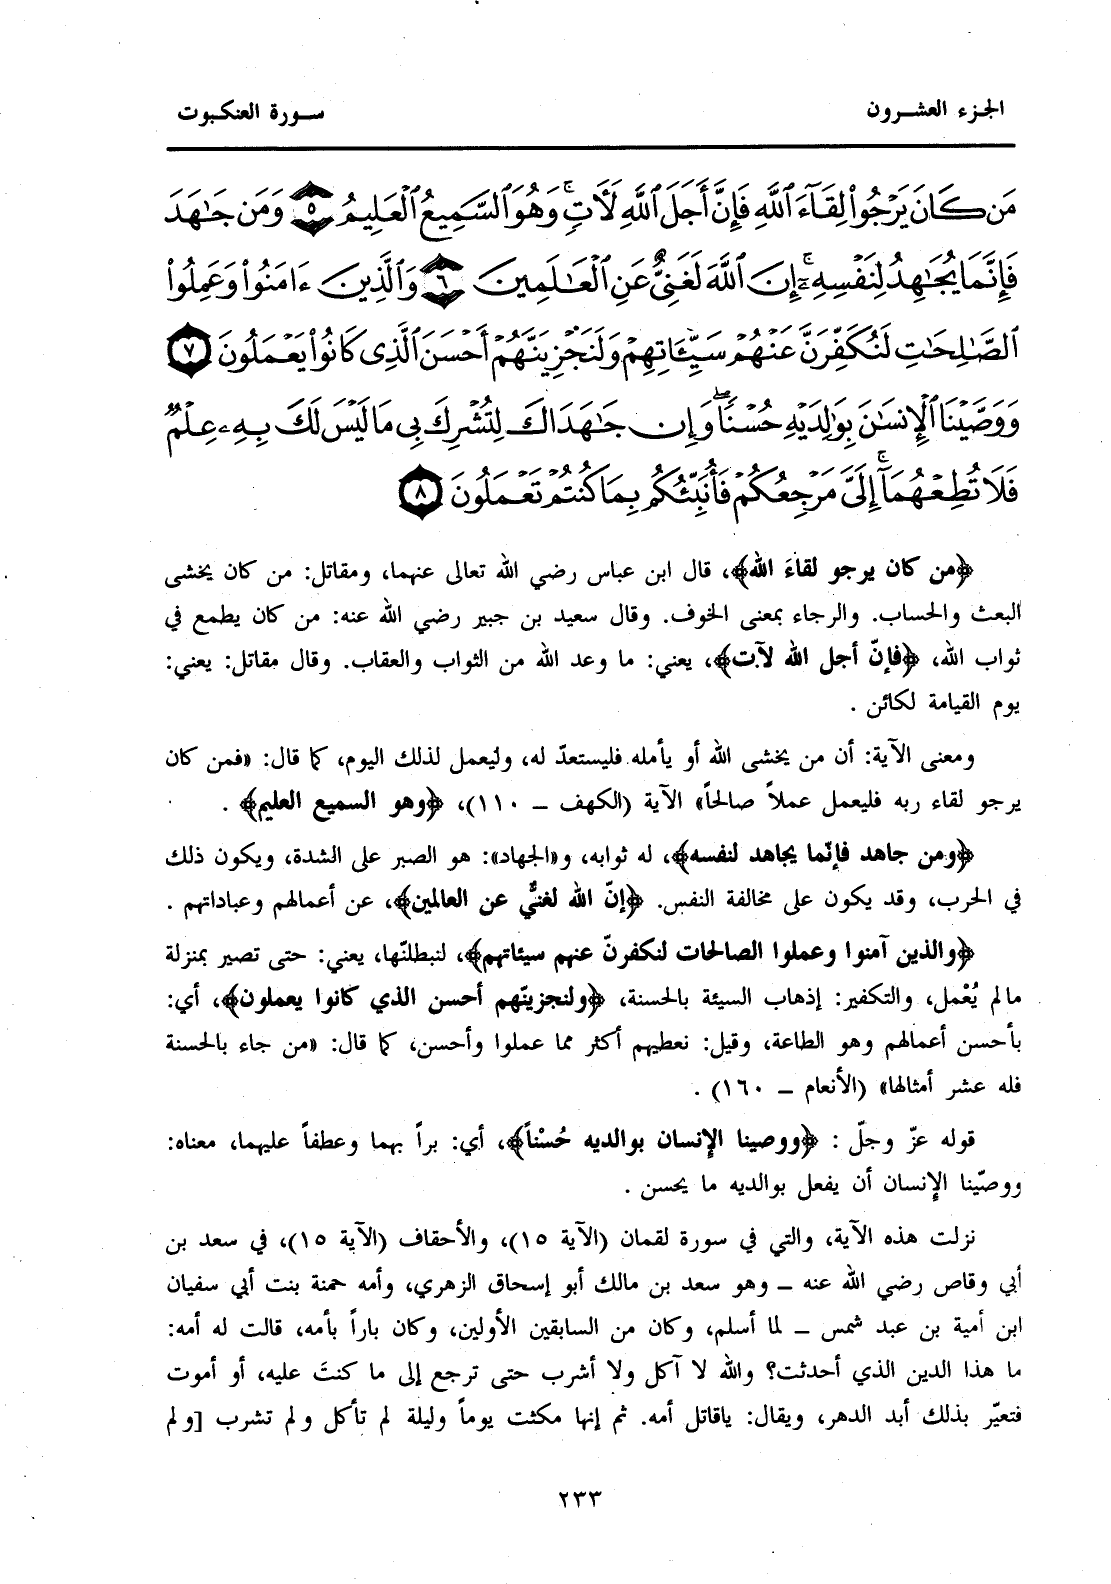 الجزء العشرون
سورة العنكبوت
مَن كَانَ يَرْجُوا۟ لِقَآءَ ٱللَّهِ فَإِنَّ أَجَلَ ٱللَّهِ لَـَٔاتٍ ۚ وَهُوَ ٱلسَّمِيعُ ٱلْعَلِيمُ ۝٥ وَمَن جَـٰهَدَ
فَإِنَّمَا يُجَـٰهِدُ لِنَفْسِهِۦٓ ۚ إِنَّ ٱللَّهَ لَغَنِىٌّ عَنِ ٱلْعَـٰلَمِينَ ۝٦ وَٱلَّذِينَ ءَامَنُوا۟ وَعَمِلُوا۟
ٱلصَّـٰلِحَـٰتِ لَنُكَفِّرَنَّ عَنْهُمْ سَيِّـَٔاتِهِمْ وَلَنَجْزِيَنَّهُمْ أَحْسَنَ ٱلَّذِى كَانُوا۟ يَعْمَلُونَ ۝٧
وَوَصَّيْنَا ٱلْإِنسَـٰنَ بِوَٰلِدَيْهِ حُسْنًا ۖ وَإِن جَـٰهَدَاكَ لِتُشْرِكَ بِى مَا لَيْسَ لَكَ بِهِۦ عِلْمٌ
فَلَا تُطِعْهُمَآ ۚ إِلَىَّ مَرْجِعُكُمْ فَأُنَبِّئُكُم بِمَا كُنتُمْ تَعْمَلُونَ ۝٨
﴿من كان يرجو لقاءَ الله﴾، قال ابن عباس رضي الله تعالى عنهما، ومقاتل: من كان يخشى
البعث والحساب. والرجاء بمعنى الخوف. وقال سعيد بن جبير رضي الله عنه: من كان يطمع في
ثواب الله، ﴿فإنّ أجل الله لآت﴾، يعني: ما وعد الله من الثواب والعقاب. وقال مقاتل: يعني:
يوم القيامة لكائن .
ومعنى الآية: أن من يخشى الله أو يأمله فليستعدّ له، وليعمل لذلك اليوم، كما قال: «فمن كان
يرجو لقاء ربه فليعمل عملاً صالحاً» الآية (الكهف ــ ١١٠)، ﴿وهو السميع العليم﴾ .
﴿ومن جاهد فإنّما يجاهد لنفسه﴾، له ثوابه، و«الجهاد»: هو الصبر على الشدة، ويكون ذلك
في الحرب، وقد يكون على مخالفة النفس. ﴿إنّ الله لغنيٌّ عن العالمين﴾، عن أعمالهم وعباداتهم .
﴿والذين آمنوا وعملوا الصالحات لنكفرنّ عنهم سيئاتهم﴾، لنبطلنّها، يعني: حتى تصير بمنزلة
مالم يُعْمل، والتكفير: إذهاب السيئة بالحسنة، ﴿ولنجزينّهم أحسن الذي كانوا يعملون﴾، أي:
بأحسن أعمالهم وهو الطاعة، وقيل: نعطيهم أكثر مما عملوا وأحسن، كما قال: «من جاء بالحسنة
فله عشر أمثالها» (الأنعام ــ ١٦٠) .
قوله عزّ وجلّ : ﴿ووصينا الإنسان بوالديه حُسْناً﴾، أي: براً بهما وعطفاً عليهما، معناه:
ووصّينا الإنسان أن يفعل بوالديه ما يحسن .
نزلت هذه الآية، والتي في سورة لقمان (الآية ١٥)، والأحقاف (الآية ١٥)، في سعد بن
أبي وقاص رضي الله عنه ــ وهو سعد بن مالك أبو إسحاق الزهري، وأمه حمنة بنت أبي سفيان
ابن أمية بن عبد شمس ــ لما أسلم، وكان من السابقين الأولين، وكان باراً بأمه، قالت له أمه:
ما هذا الدين الذي أحدثت؟ والله لا آكل ولا أشرب حتى ترجع إلى ما كنتَ عليه، أو أموت
فتعيّر بذلك أبد الدهر، ويقال: ياقاتل أمه. ثم إنها مكثت يوماً وليلة لم تأكل ولم تشرب [ولم
٢٣٣